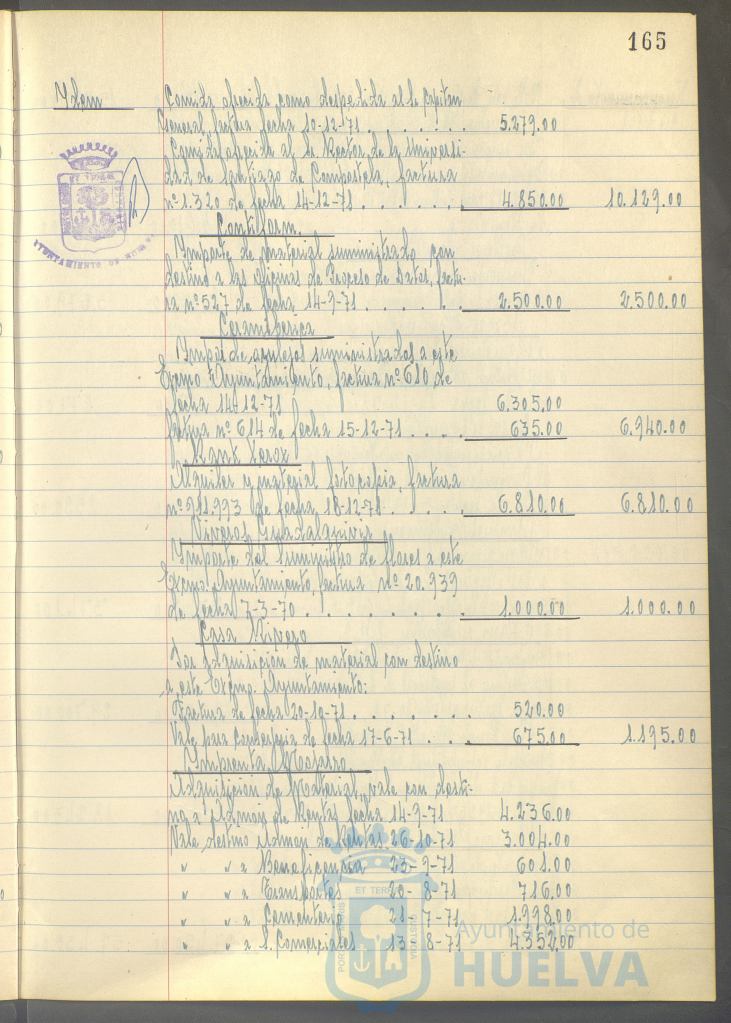 165
Ydem
Comida ofrecida como despedida al Sr. Capitan
General, factura fecha 10-12-71 . . . . . . 5.279.00
Comida ofrecida al Sr. Rector de la Universi-
dad de Santiago de Compostela, factura
nº 1.320 de fecha 14-12-71 . . . . . . 4.850.00 10.129.00
Contiform.
Importe de material suministrado con
destino a las oficinas de Proceso de Datos, factu-
ra nº 527 de fecha 14-9-71 . . . . . . 2.500.00 2.500.00
Ceramiberica
Impor. de azulejos suministrados a este
Excmo Ayuntamiento, factura nº 610 de
fecha 14-12-71 6.305,00
factura nº 614 de fecha 15-12-71 . . . . 635.00 6.940.00
Rank Xerox
Alquiler y material fotocopia, factura
nº 911.993 de fecha 18-12-71 . . . . . 6.810.00 6.810.00
Viveros Guadalquivir
Importe del suministro de flores a este
Excmo. Ayuntamiento, factura nº 20.939
de fecha 7-3-70 . . . . . . . . . 1.000.00 1.000.00
Casa Ripero
Por adquisición de material con destino
a este Excmo. Ayuntamiento:
Factura de fecha 20-10-71 . . . . . . . 520.00
Vale para Conserjeria de fecha 17-6-71 . . . 675.00 1.195.00
Imprenta Mojarro
Adquisición de Material, vale con desti-
no a Admon de Rentas fecha 14-9-71 4.236.00
Vale destino Admon de Rentas 26-10-71 3.004.00
" " a Beneficencia 23-9-71 601.00
" " a Transportes 20-8-71 716.00
" " a Cementerio 21-7-71 1.998.00
" " a S. Comerciales 13-8-71 4.352,00
Ayuntamiento de
HUELVA